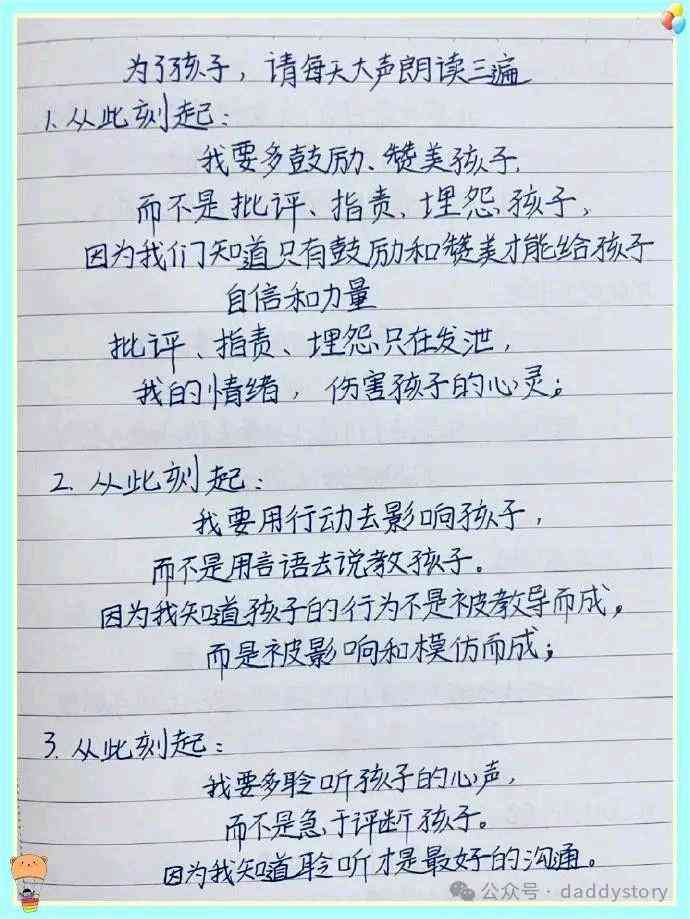 为了孩子，请每天大声朗读三遍
1.从此刻起：
我要多鼓励、赞美孩子，
而不是批评、指责、埋怨孩子，
因为我们知道只有鼓励和赞美才能给孩子
自信和力量
批评、指责、埋怨只在发泄，
我的情绪，伤害孩子的心灵；
2.从此刻起：
我要用行动去影响孩子，
而不是用言语去说教孩子。
因为我知道孩子的行为不是被教导而成，
而是被影响和模仿而成；
3.从此刻起：
我要多聆听孩子的心声，
而不是急于评断孩子。
因为我知道聆听才是最好的沟通。
公众号·daddystory